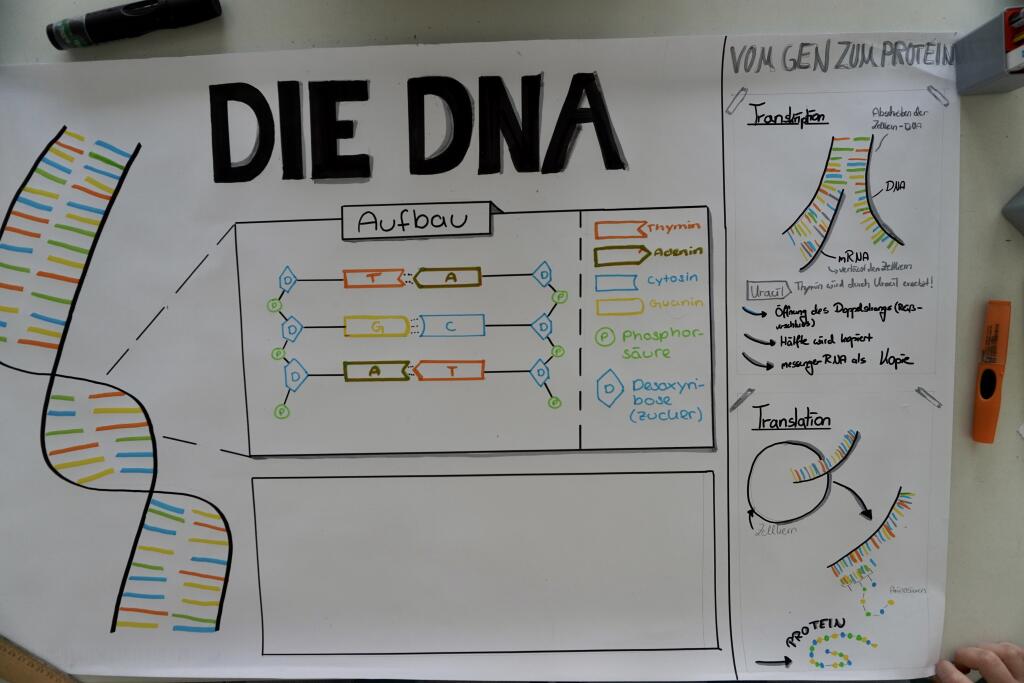 DIE DNA
Aufbau
D T A D
P P
D G C D
P P
D A T D
P P
Thymin
Adenin
Cytosin
Guanin
P Phosphor-
säure
D Desoxyri-
bose
(Zucker)
VOM GEN ZUM PROTEIN
Transkription
Abschreiben der
Zellkern-DNA
DNA
mRNA
verlässt den Zellkern
Uracil Thymin wird durch Uracil ersetzt!
Öffnung des Doppelstrangs (Reiß-
verschluss)
Hälfte wird kopiert
messenger-RNA als Kopie
Translation
Zellkern
Aminosäuren
PROTEIN